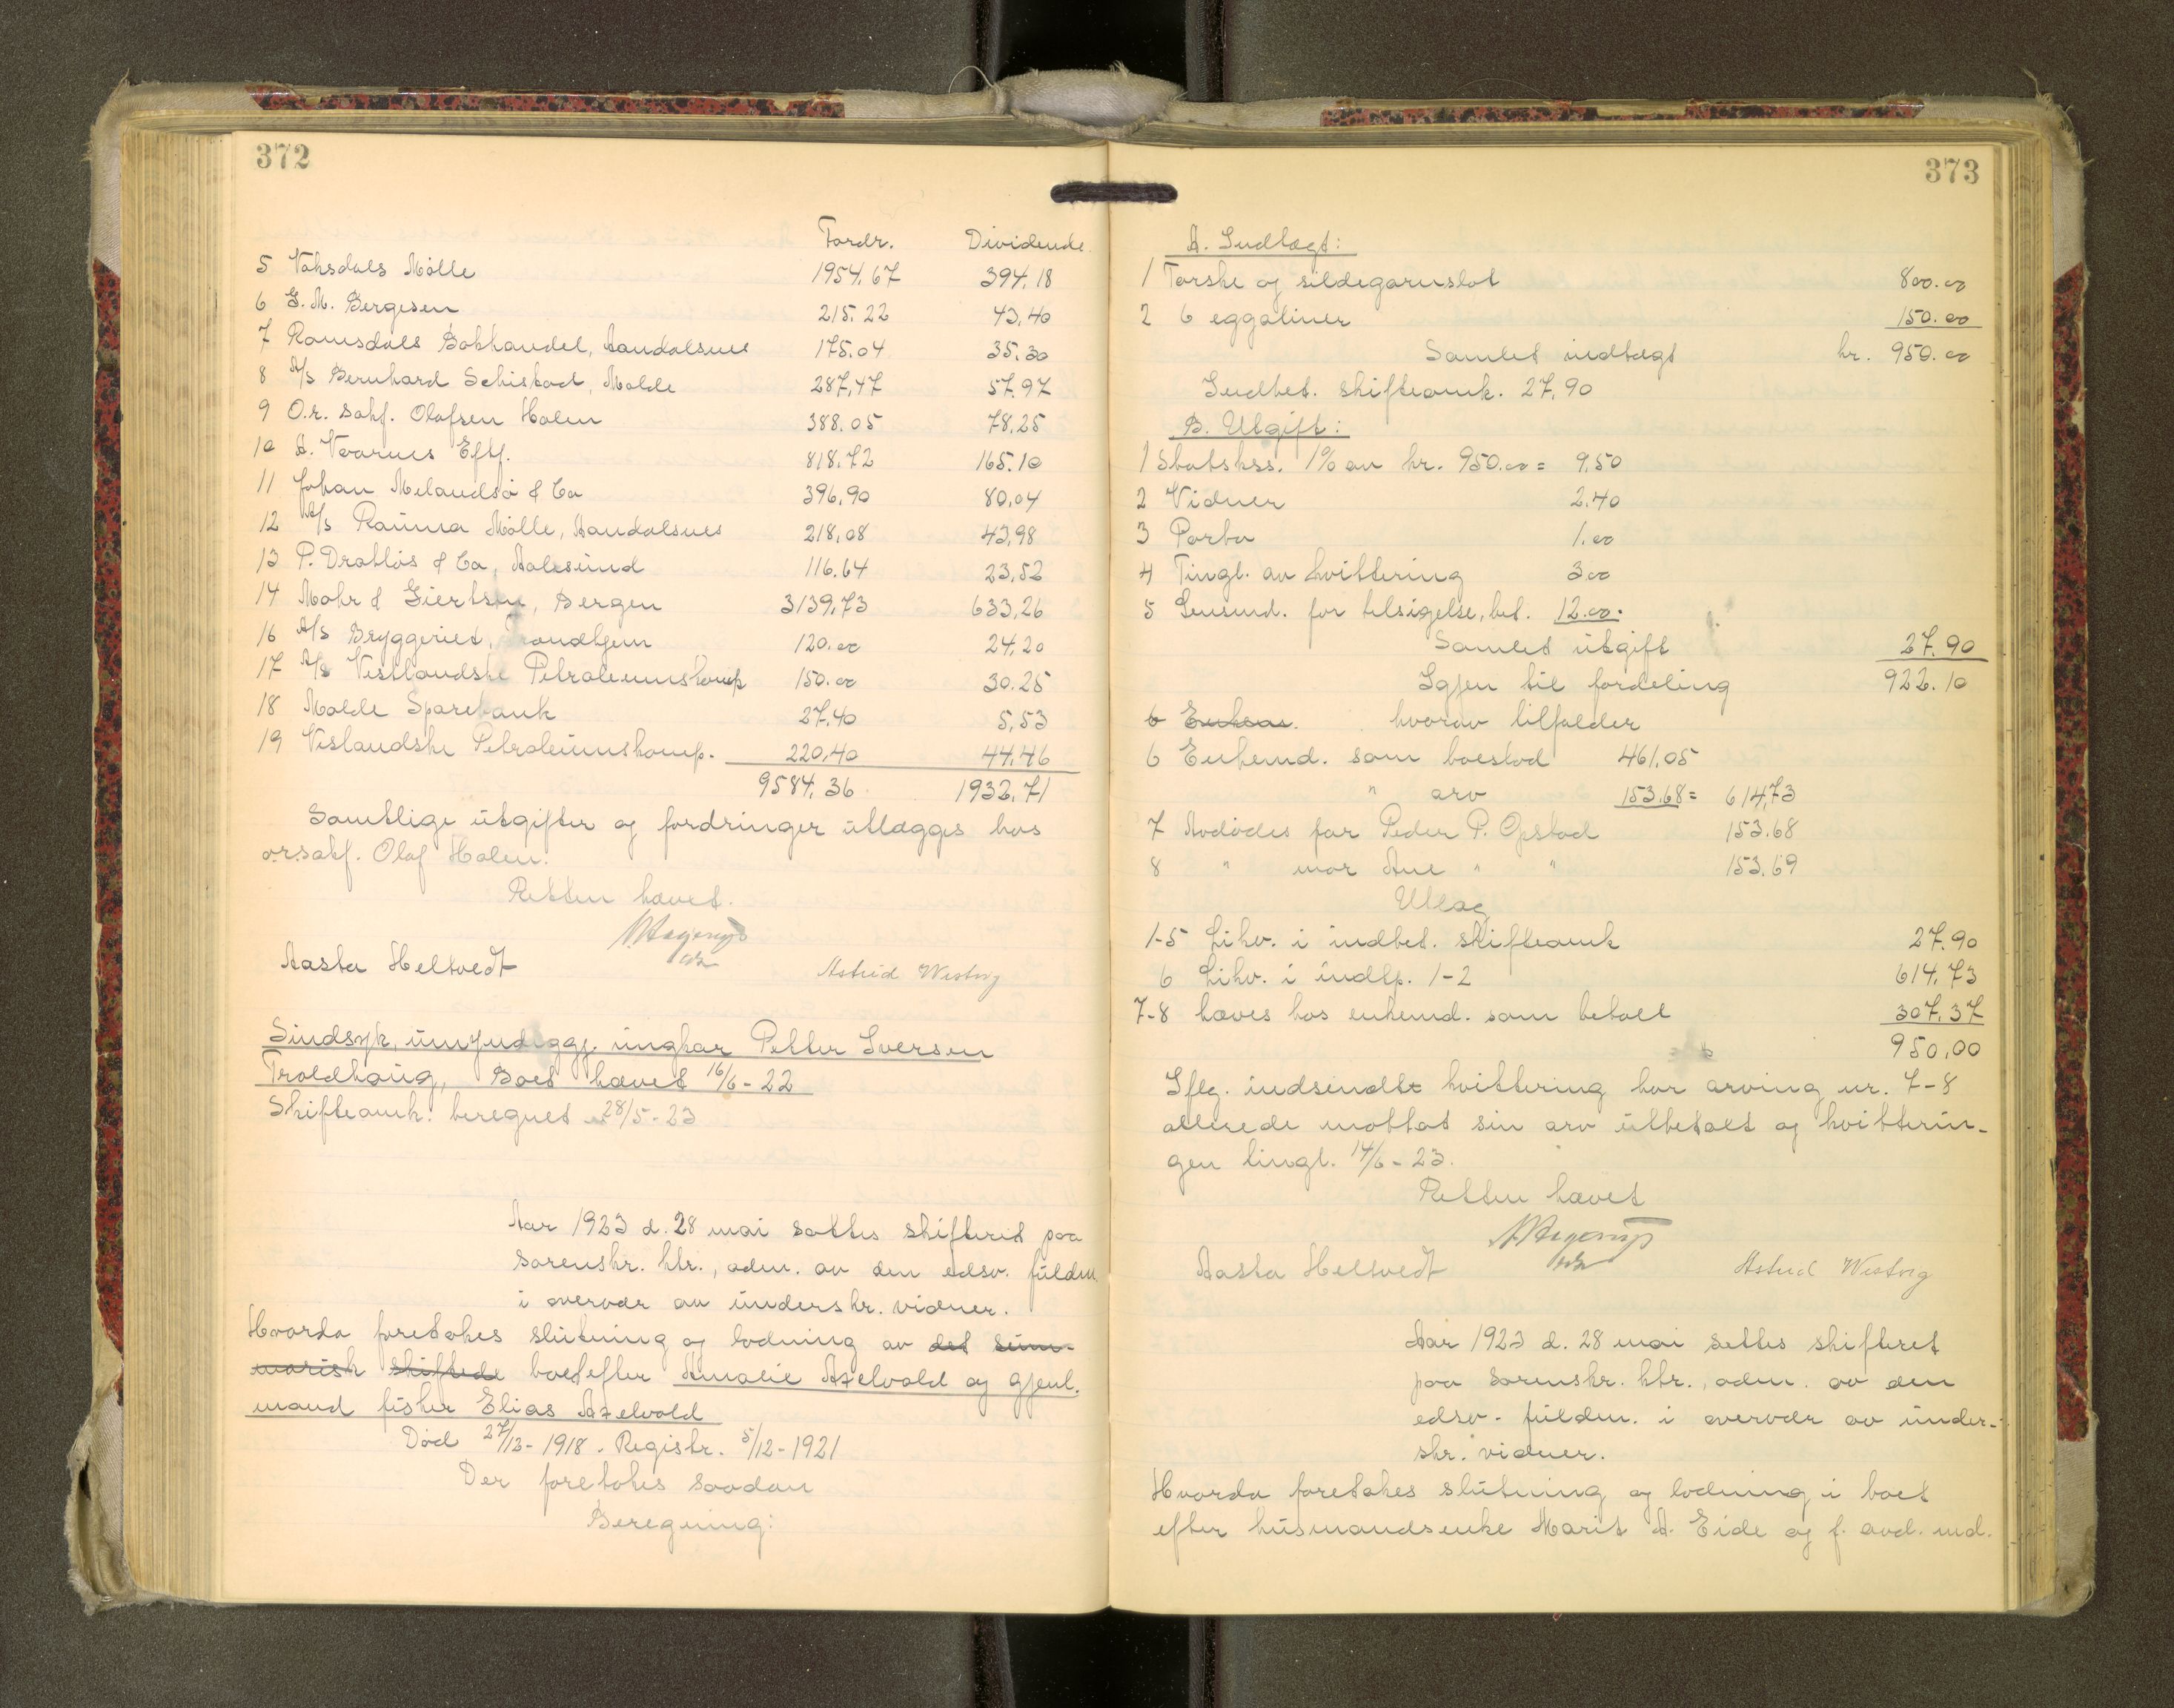 372
Fordr. Dividende.
5 Vaksdals Mølle 1954.67 394.18
6 G. M. Bergesen 215.22 43.40
7 Romsdals Bokhandel, Aandalsnes 175.04 35.30
8 A/S Bernhard Schistad, Molde 287,47 57.97
9 O.r. sakf. Olafsen Holm 388.05 78.25
10 A. Vaarnes Eftf. 818.72 165.10
11 Johan Melandsø & Co 396.90 80,04
12 A/S Rauma Mølle, Aandalsnes 218.08 43,98
13 P. Drabløs & Co, Aalesund 116.64 23,52
14 Mohr & Giertsen, Bergen 3139,73 633,26
16 A/S Bryggeriet, Trondhjem 120.00 24.20
17 A/S Vestlandske Petroleumskomp 150.00 30.25
18 Molde Sparebank 27.40 5,53
19 Vestlandske Petroleumskomp. 220,40 44.46
9584.36 1932.71
Samtlige utgifter og fordringer utlægges hos
o.r.sakf. Olaf Holm.
Retten hævet.
Aasta Heltvedt Astrid Westvig
Sindsyk, umyndiggj. ungkar Petter Iversen
Troldhaug, Boet hævet 16/6-22
Skifteomk. beregnet 28/5-23
Aar 1923 d. 28 mai sattes skifteret paa
sorenskr. ktr., adm. av den edsv. fuldm.
i overvær av underskr. vidner.
Hvorda foretokes slutning og lodning av det sum-
marisk skiftede boet efter Amalie Axelvold og gjenl.
mand fisker Elias Axelvold
Død 27/12-1918. Registr. 5/12-1921
Der foretokes saadan
Beregning:
373
A. Indtægt:
1 Torske og sildegarnslot 800.00
2 6 eggaliner 150.00
Samlet indtægt kr. 950.00
Indbet. skifteomk. 27,90
B. Utgift:
1 Statskss. 1% av kr. 950.00 = 9.50
2 Vidner 2.40
3 Porto 1.00
4 Tingl. av kvittering 3.00
5 Lensmd. for tilsigelse, bet. 12.00.
Samlet utgift 27.90
Igjen til fordeling 922.10
6 Enkens. hvorav tilfalder
6 Enkemd. som boeslod 461.05
" arv 153.68 = 614,73
7 Avdødes far Peder P. Opstad 153.68
8 " mor Ane " " 153.69
Utlæg
1-5 Likv. i indbet. skifteomk 27.90
6 Likv. i indtp. 1-2 614.73
7-8 hæves hos enkemd. som betalt 307.37
950,00
Iflg. indsendte kvittering har arving nr. 7-8
allerede mottat sin arv utbetalt og kvitterin-
gen tingl. 14/6-23.
Retten hævet
Aasta Heltvedt Astrid Westvig
Aar 1923 d. 28 mai sattes skifteret
paa sorenskr. ktr., adm. av den
edsv. fuldm. i overvær av under-
skr. vidner.
Hvorda foretokes slutning og lodning i boet
efter husmandsenke Marit A. Eide og f. avd. md.